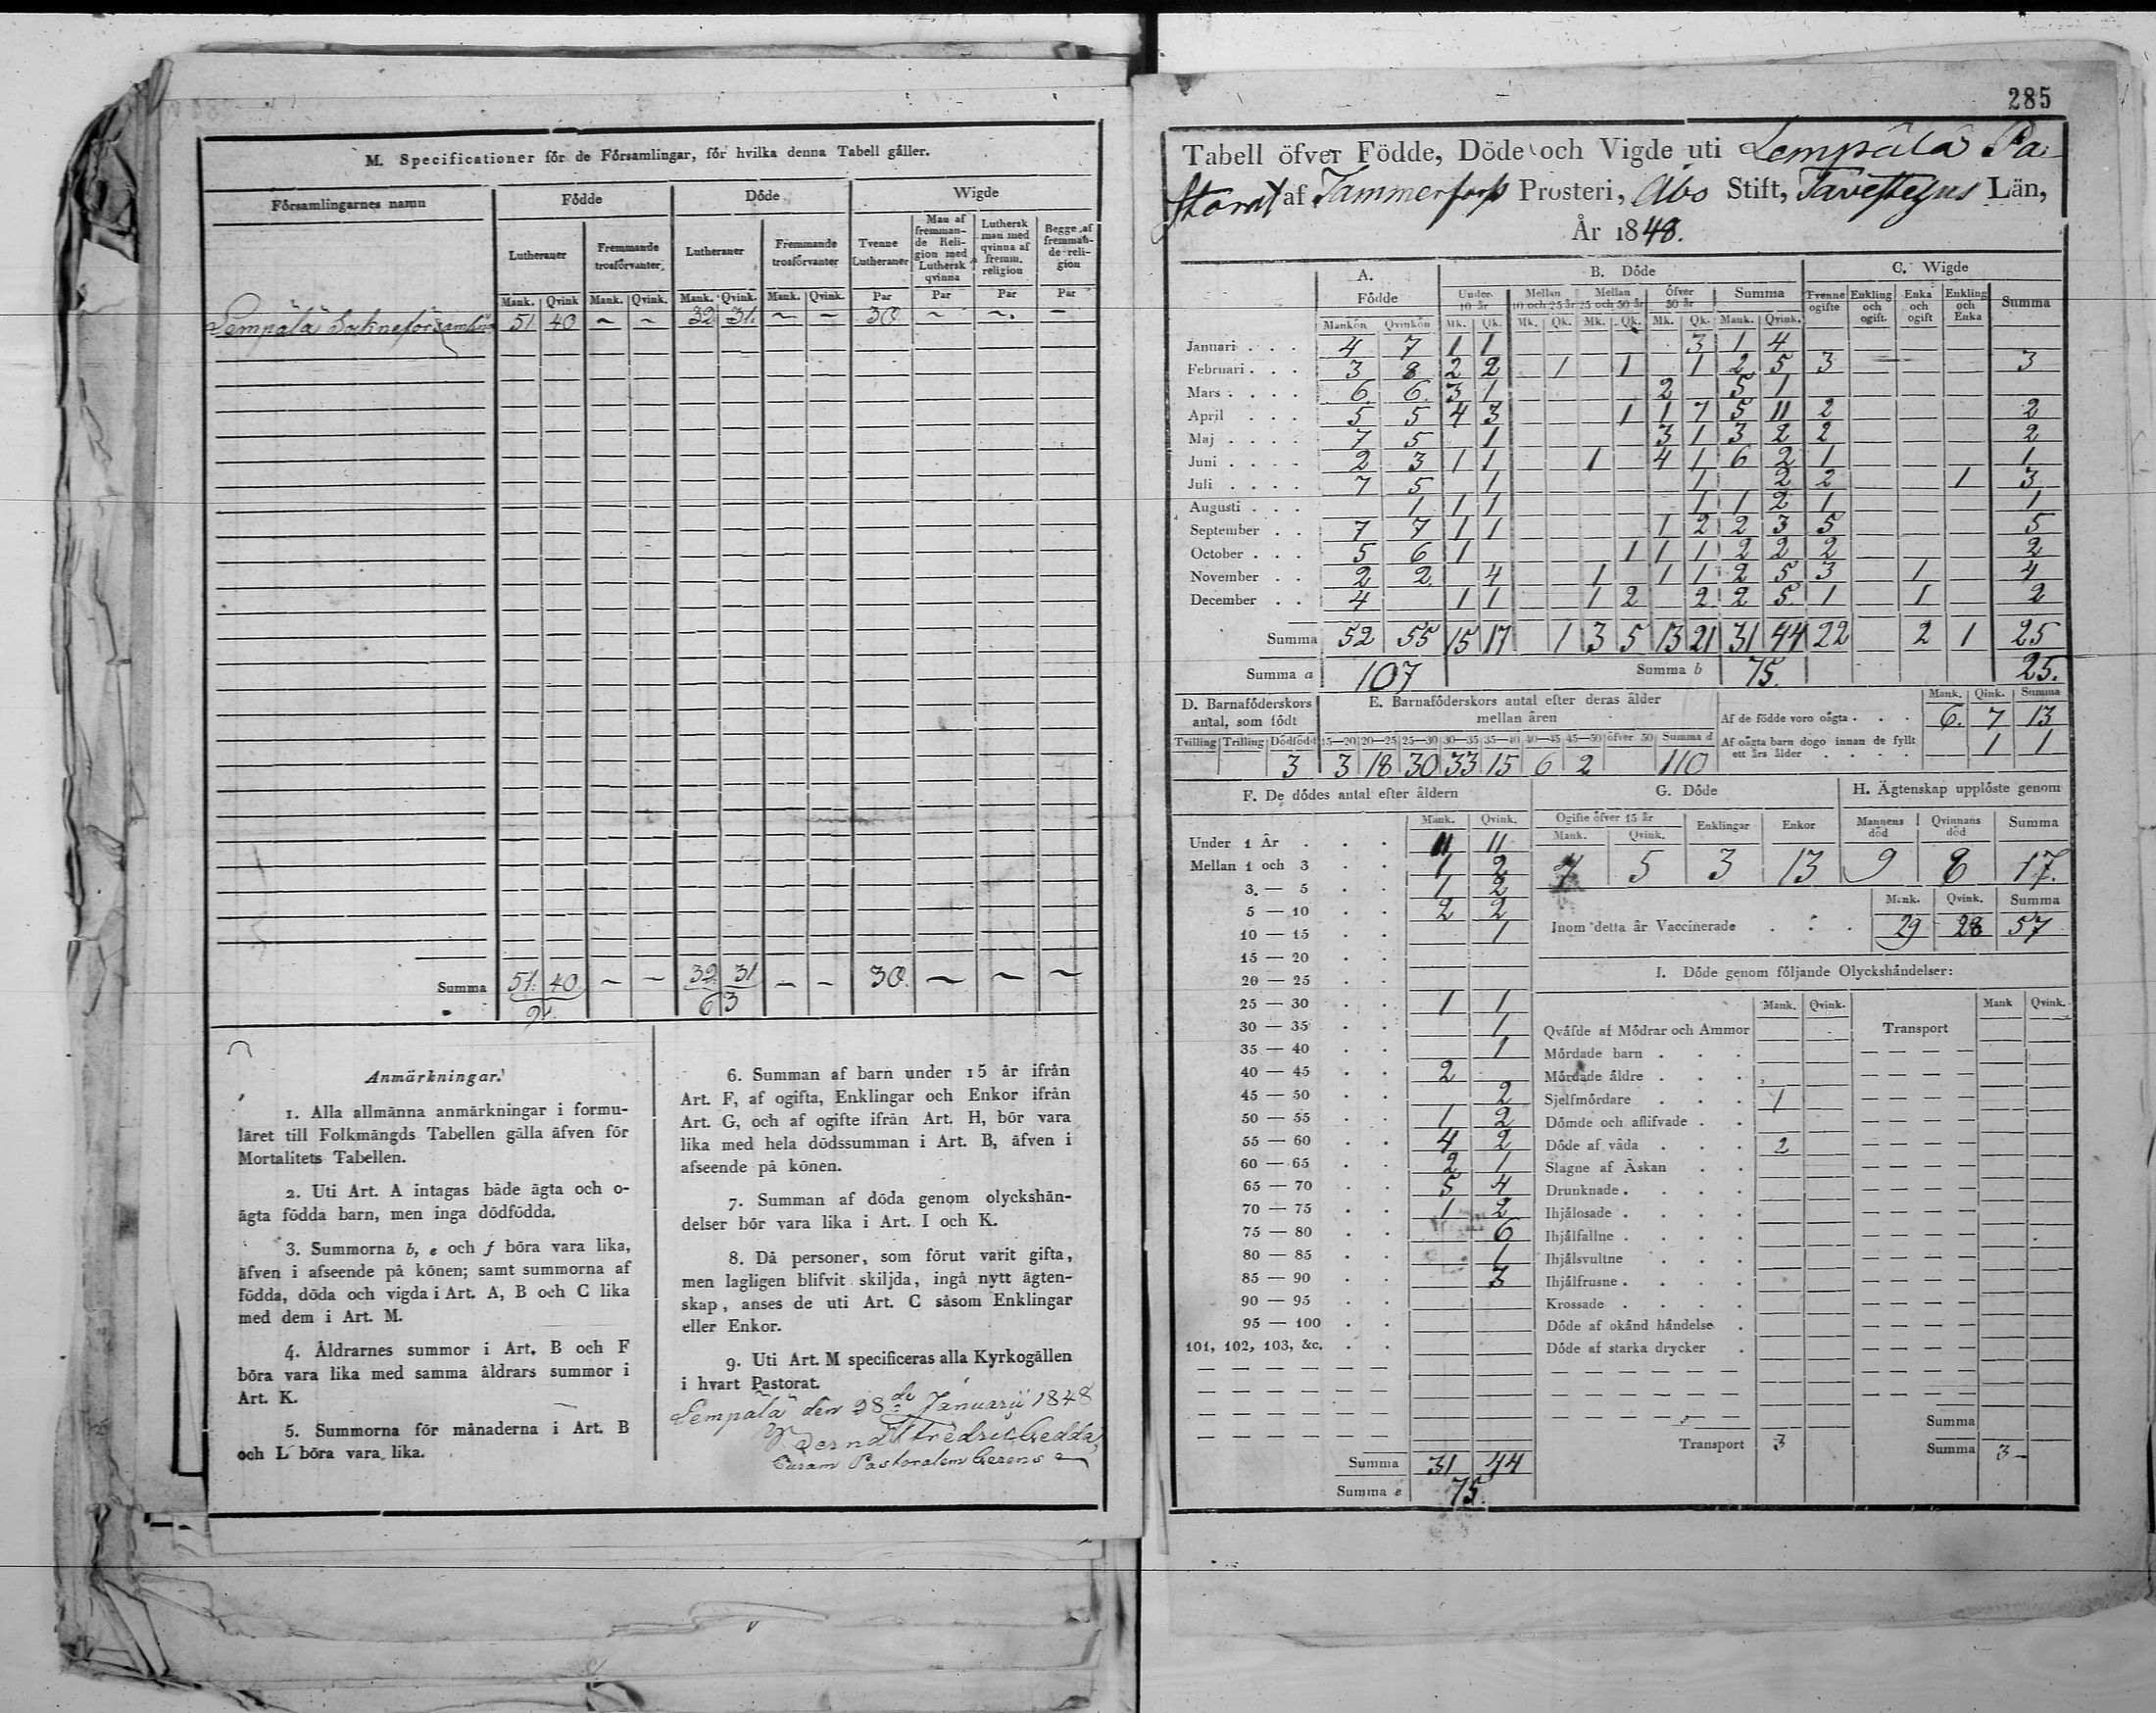 M. Specificationer för de Församlingar, för hvilka denna Tabell gäller.
Församlingarnes namn Födde Döde Wigde
Lutheraner Fremmande trosförvanter. Lutheraner Fremmande trosförvanter Tvenne Lutheraner Man af fremmande Religion med Luthersk qvinna Luthersk man med qvinna af fremm. religion Begge af fremmande religion
Mank. Qvink Mank. Qvink. Mank. Qvink. Mank. Qvink. Par Par Par Par
Lempälä 51 40 ~ ~ 32 31. ~ — 30 ~ ~. —
Summa 51. 40. ~ ~ 32. 31 — — 30. ~ ~ ~
91. 63
Anmärkningar.
1. Alla allmänna anmärkningar i formu-
läret till Folkmängds Tabellen gälla äfven för
Mortalitets Tabellen.
2. Uti Art. A intagas både ägta och o-
ägta födda barn, men inga dödfödda.
3. Summorna b, e och f böra vara lika,
äfven i afseende på könen; samt summorna af
födda, döda och vigda i Art. A, B och C lika
med dem i Art. M.
4. Åldrarnes summor i Art. B och F
böra vara lika med samma åldrars summor i
Art. K.
5. Summorna för månaderna i Art. B
och L böra vara lika.
6. Summan af barn under 15 år ifrån
Art. F, af ogifta, Enklingar och Enkor ifrån
Art. G, och af ogifte ifrån Art. H, bör vara
lika med hela dödssumman i Art. B, äfven i
afseende på könen.
7. Summan af döda genom olyckshän-
delser bör vara lika i Art. I och K.
8. Då personer, som förut varit gifta,
men lagligen blifvit skiljda, ingå nytt ägten-
skap, anses de uti Art. C såsom Enklingar
eller Enkor.
9. Uti Art. M specificeras alla Kyrkogällen
i hvart Pastorat.
Lempälä den 28de Januarii 1848
Bernd Fredric Gedda,
Curam Pastoralem Gerens
285
Tabell öfver Födde, Döde och Vigde uti Lempälä Pa-
storat af Tammerfors Prosteri, Åbo Stift, Tavastehus Län,
År 1848.
A. B. Döde C. Wigde
Födde Under 10 år Mellan 10 och 25 år Mellan 25 och 50 år Öfver 50 år Summa Tvenne ogifte Enkling och ogift. Enka och ogift Enkling och Enka Summa
Mankön Qvinkön Mk. Qk. Mk. Qk. Mk. Qk. Mk. Qk. Mank. Qvink.
Januari . . . 4 7 1 1 3 1 4
Februari . . . 3 8 2 2 1 1 1 2 5 3 3
Mars . . . . 6 6 3 1 2 5 1
April . . . 5 5 4 3 1 1 7 5 11 2 2
Maj . . . . 7 5 1 3 1 3 2 2 2
Juni . . . . 2 3 1 1 1 4 1 6 2 1 1
Juli . . . . 7 5 1 1 2 2 1 3
Augusti . . . 1 1 1 1 1 2 1 1
September . . 7 7 1 1 1 2 2 3 5 5
October . . . 5 6 1 1 1 1 2 2 2 2
November . . 2 2 4 1 1 1 2 5 3 1 4
December . . 4 1 1 1 2 2 2 5 1 1 2
Summa 52 55 15 17 1 3 5 13 21 31 44 22 2 1 25
Summa a 107 Summa b 75. 25.
D. Barnaföderskors antal, som födt E. Barnaföderskors antal efter deras ålder mellan åren Mank. Qink. Summa
Af de födde voro oägta . . . 6. 7 13
Tvilling Trilling Dödfödt 15—20 20—25 25—30 30—35 35—40 40—45 45—50 öfver 50 Summa d
Af oägta barn dogo innan de fyllt ett års ålder 1 1
3 3 18 30 33 15 6 2 110
F. De dödes antal efter åldern
Mank. Qvink.
Under 1 År . . . 11 11
Mellan 1 och 3 . . 1 2
3. — 5 . . 1 2
5 — 10 . . 2 2
10 — 15 . . 1
15 — 20 . .
20 — 25 . .
25 — 30 . . 1 1
30 — 35 . . 1
35 — 40 . . 1
40 — 45 . . 2
45 — 50 . . 2
50 — 55 . . 1 2
55 — 60 . . 4 2
60 — 65 . . 2 1
65 — 70 . . 5 4
70 — 75 . . 1 2
75 — 80 . . 6
80 — 85 . . 1
85 — 90 . . 3
90 — 95 . .
95 — 100 . .
101, 102, 103, &c. . .
Summa 31 44
Summa e 75.
G. Döde H. Ägtenskap upplöste genom
Ogifte öfver 15 år Enklingar Enkor Mannens död Qvinnans död Summa
Mank. Qvink.
5 3 13 9 8 17.
Mank. Qvink. Summa
Inom detta år Vaccinerade . . . 29 28 57
I. Döde genom följande Olyckshändelser:
Mank. Qvink. Mank Qvink.
Qväfde af Mödrar och Ammor Transport
Mördade barn . . .
Mördade äldre . . .
Sjelfmördare . . . 1
Dömde och aflifvade . .
Döde af våda . . . 2
Slagne af Åskan . .
Drunknade . . . .
Ihjälosade . . . .
Ihjälfallne . . . .
Ihjälsvultne . . .
Ihjälfrusne . . . .
Krossade . . . .
Döde af okänd händelse .
Döde af starka drycker .
Summa
Transport 3 Summa 3 -